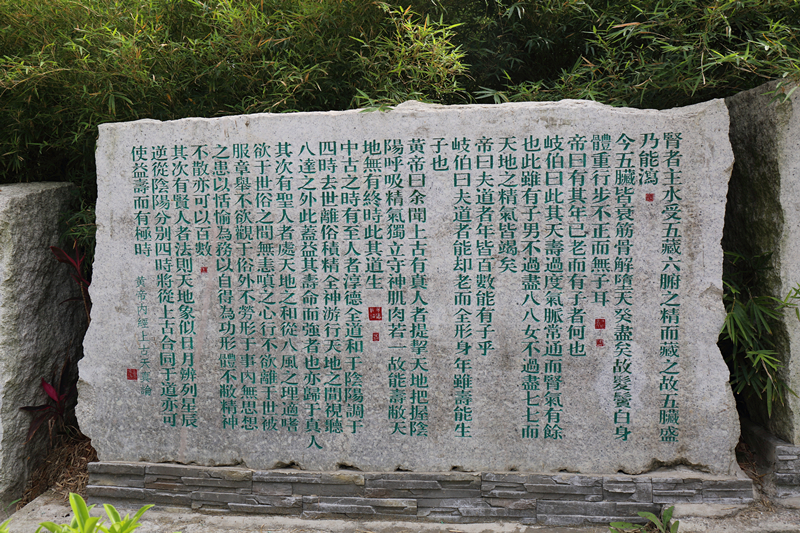 賢者主水受五藏六腑之精而藏之故五臟盛
乃能瀉
今五臟皆衰筋骨解墮天癸盡矣故髮鬢白身
體重行步不正而無子耳
帝曰有其年已老而有子者何也
岐伯曰此其天壽過度氣脈常通而腎氣有餘
也此雖有子男不過盡八八女不過盡七七而
天地之精氣皆竭矣
帝曰夫道者年皆百數能有子乎
岐伯曰夫道者能却老而全形身年雖壽能生
子也
黃帝曰余聞上古有真人者提挈天地把握陰
陽呼吸精氣獨立守神肌肉若一故能壽敝天
地無有終時此其道生
中古之時有至人者淳德全道和于陰陽調于
四時去世離俗積精全神游行天地之間視聽
八達之外此蓋益其壽命而強者也亦歸于真人
其次有聖人者處天地之和從八風之理適嗜
欲于世俗之間無恚嗔之心行不欲離于世被
服章舉不欲觀于俗外不勞形于事內無思想
之患以恬愉為務以自得為功形體不敝精神
不散亦可以百數
其次有賢人者法則天地象似日月辨列星辰
逆從陰陽分別四時將從上古合同于道亦可
使益壽而有極時
黃帝內經上古天真論